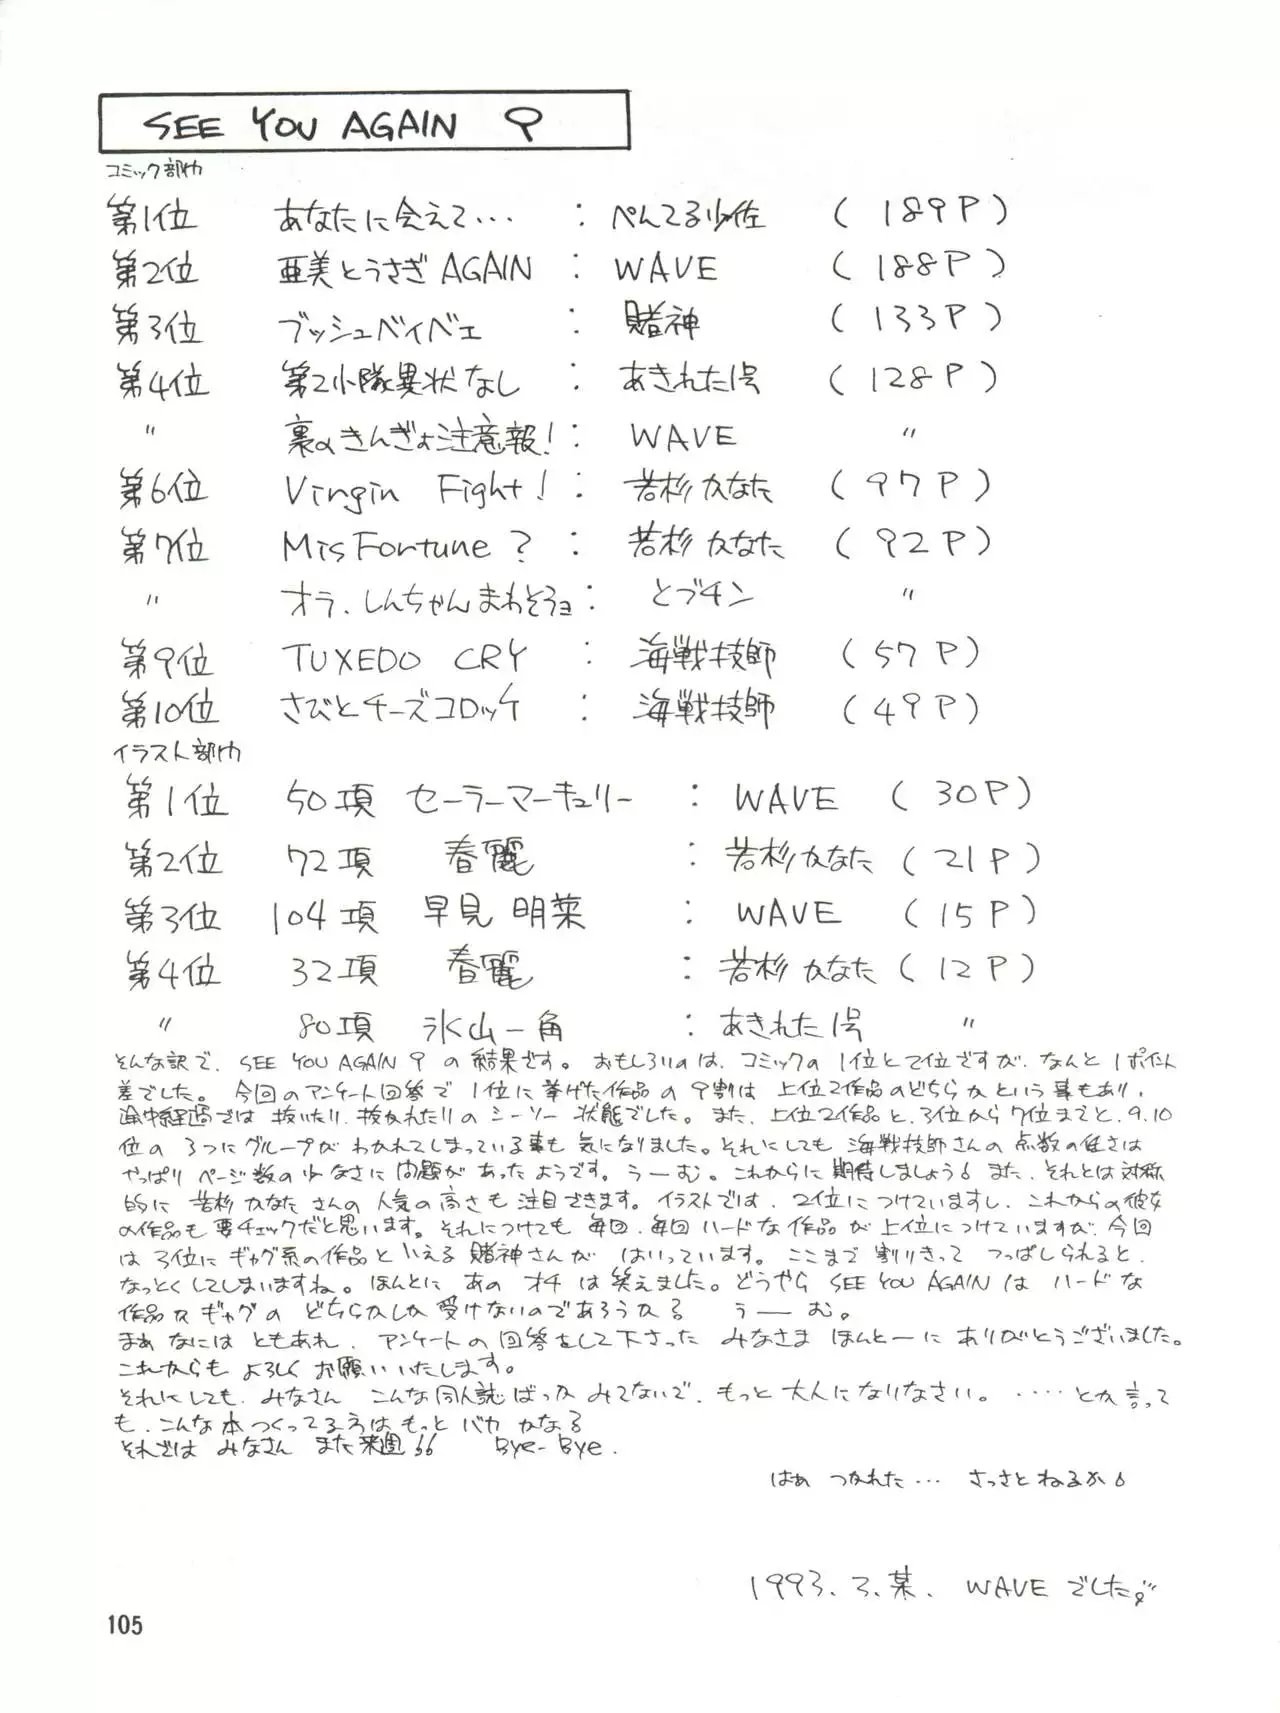 SEE YOU AGAIN 9
コミック部門
第1位 あなたに会えて・・・ : ぺんてる少佐 (189P)
第2位 亜美とうさぎAGAIN : WAVE (188P)
第3位 ブッシュベイベェ : 賭神 (133P)
第4位 第2小隊異状なし : あきれた1号 (128P)
〃 裏のきんぎょ注意報! : WAVE 〃
第6位 Virgin Fight! : 若杉かなた (97P)
第7位 MisFortune? : 若杉かなた (92P)
〃 オラ、しんちゃんまわそうョ : とブチン 〃
第9位 TUXEDO CRY : 海戦技師 (57P)
第10位 さびとチーズコロッケ : 海戦技師 (49P)
イラスト部門
第1位 50項 セーラーマーキュリー : WAVE (30P)
第2位 72項 春麗 : 若杉かなた (21P)
第3位 104項 早見 明菜 : WAVE (15P)
第4位 32項 春麗 : 若杉かなた (12P)
〃 80項 氷山一角 : あきれた1号 〃
そんな訳で、SEE YOU AGAIN 9 の結果です。おもしろいのは、コミックの1位と2位ですが、なんと1ポイント
差でした。今回のアンケート回答で1位に挙げた作品の9割は上位2作品のどちらかという事もあり、
途中経過では抜いたり、抜かれたりのシーソー状態でした。また、上位2作品と、3位から7位までと、9.10
位の3つにグループがわかれてしまっている事も気になりました。それにしても海戦技師さんの点数の低さは
やっぱりページ数の少なさに問題があったようです。うーむ。これからに期待しましょう。また、それとは対称
的に若杉かなたさんの人気の高さも注目できます。イラストでは、2位につけていますし、これからの彼女
の作品も要チェックだと思います。それにつけても毎回、毎回ハードな作品が上位につけていますが、今回
は3位にギャグ系の作品といえる賭神さんがはいっています。ここまで割りきってつっぱしられると、
なっとくしてしまいますね。ほんとにあのオチは笑えました。どうやらSEE YOU AGAINはハードな
作品かギャグのどちらかしか受けないのであろうかる うーーむ。
まぁなにはともあれ、アンケートの回答をして下さったみなさまほんとーにありがとうございました。
これからもよろしくお願いいたします。
それにしても、みなさんこんな同人誌ばっかみてないで、もっと大人になりなさい。・・・・とか言って
も、こんな本つくってるうちはもっとバカかなる
それではみなさんまた来週 Bye-Bye.
はぁ つかれた・・・ さっさとねるか
1993.3.某. WAVEでした
105